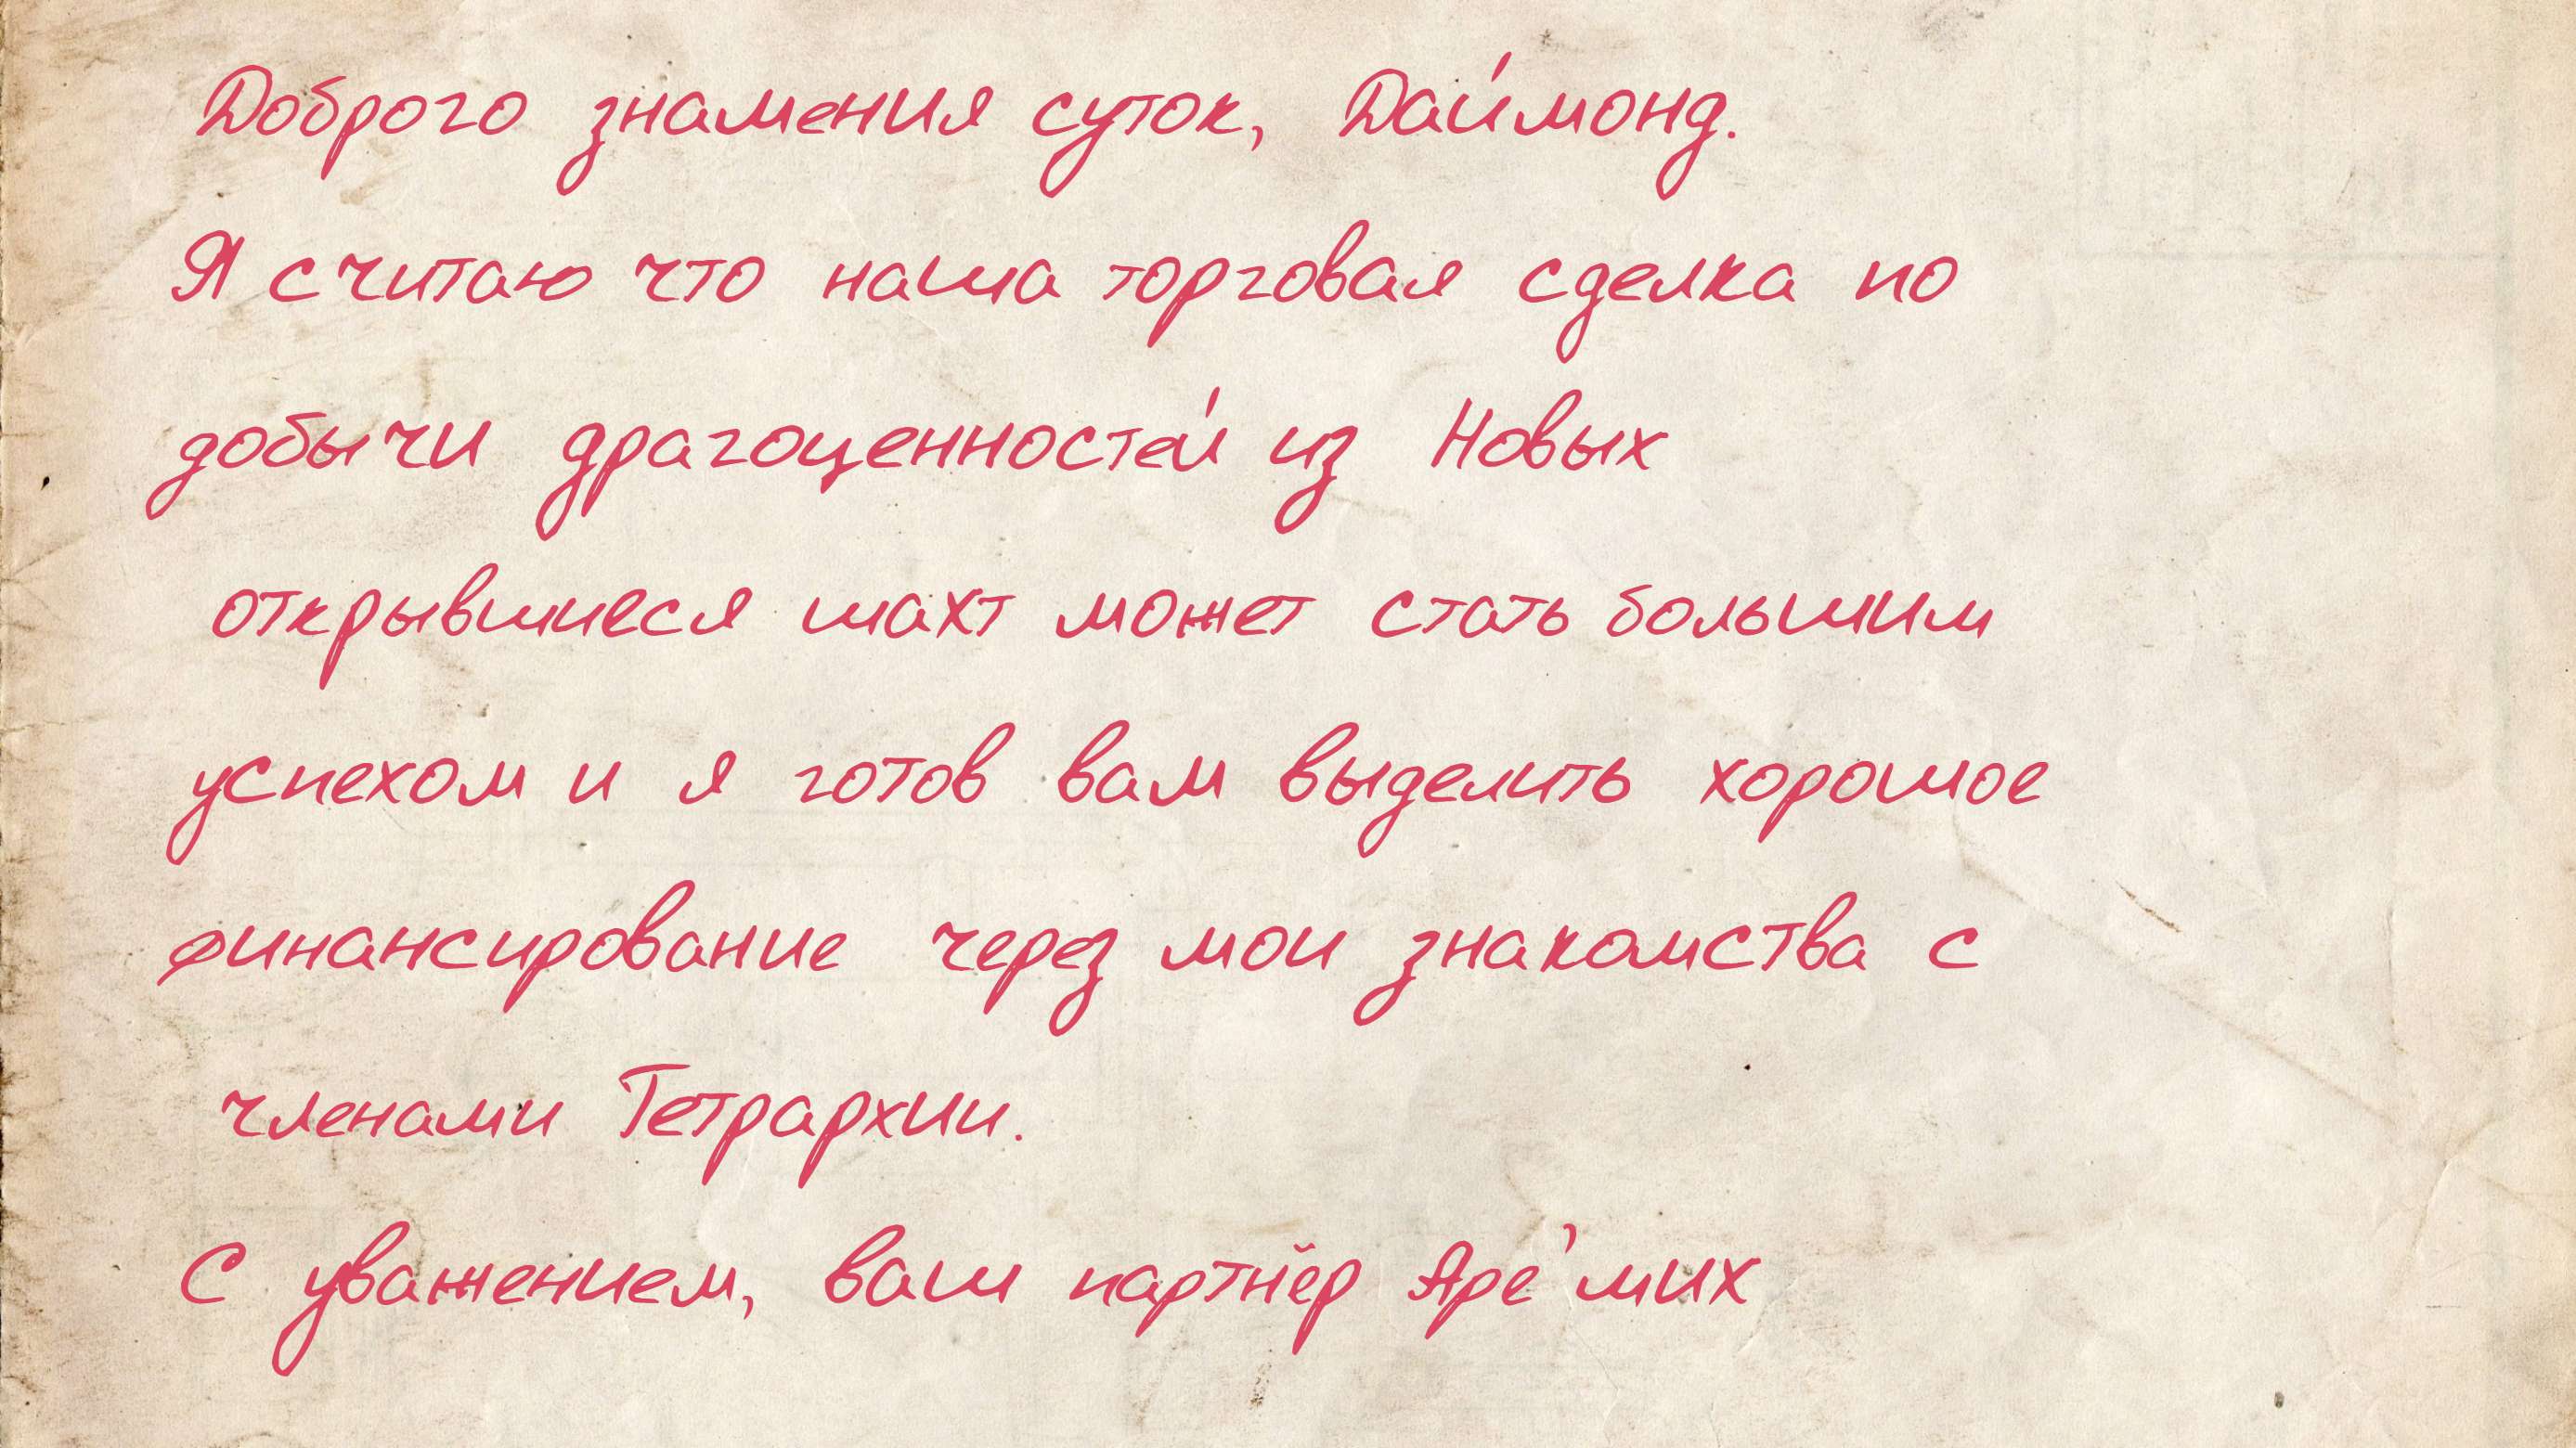 Доброго знамения суток, Даймонд.
Я считаю что наша торговая сделка по
добычи драгоценностей из Новых
открывшиеся шахт может стать большим
успехом и я готов вам выделить хорошое
финансирование через мои знакомства с
членами Тетрархии.
С уважением, ваш партнёр Аре'мих